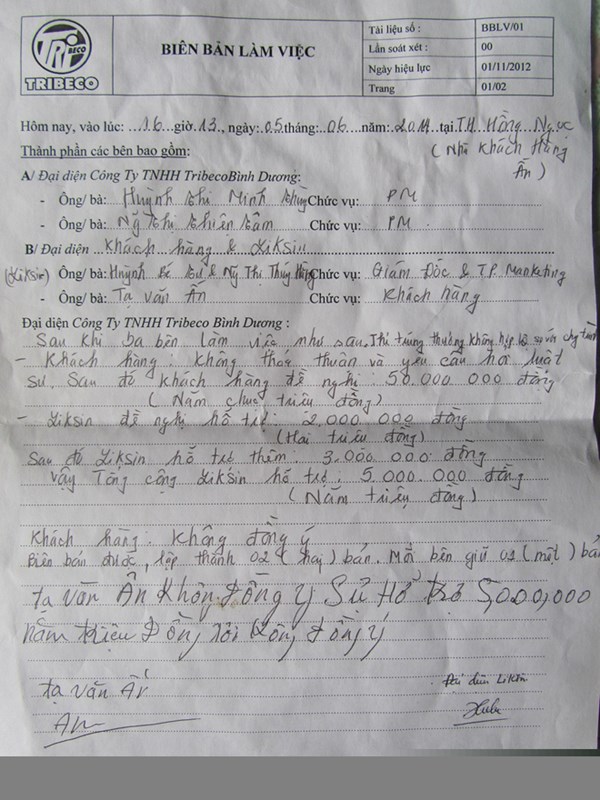 TRI BECO
TRIBECO
BIÊN BẢN LÀM VIỆC
Tài liệu số : BBLV/01
Lần soát xét : 00
Ngày hiệu lực 01/11/2012
Trang 01/02
Hôm nay, vào lúc: 16 giờ 13, ngày: 05 tháng: 06 năm: 2014 tại TH. Hồng Ngự
Thành phần các bên bao gồm: ( Nhà khách Hàng
A/ Đại diện Công Ty TNHH TribecoBình Dương: Ấn )
- Ông/ bà: Huỳnh thị Minh Chức vụ: PM
- Ông/ bà: Ng thị thiên tâm Chức vụ: PM
B/ Đại diện khách hàng & Liksin
(Liksin) Ông/ bà: Huỳnh & Ng Thị Thúy Chức vụ: Giám Đốc & T.P. Marketing
- Ông/ bà: Tạ văn Ấn Chức vụ: khách hàng
Đại diện Công Ty TNHH Tribeco Bình Dương :
Sau khi ba bên làm việc như sau. Thì trúng thưởng không hợp lệ so với
- khách hàng : không thỏa thuận và yêu cầu hỏi luật
sư. Sau đó khách hàng đề nghị : 50.000 000 đồng
( Năm chục triệu đồng)
- Liksin đề nghị hỗ trợ : 2.000 000 đồng
(Hai triệu đồng)
Sau đó Liksin hỗ trợ thêm : 3.000 000 đồng
vậy Tổng cộng Liksin hỗ trợ : 5 000 000 đồng
( Năm triệu đồng)
khách hàng : không đồng ý
Biên bản được lập thành 02 ( hay) bản. Mỗi bên giữ 01 ( một) bả
tạ văn Ấn Không Đồng ý Sự Hổ trợ 5000,000
năm triệu Đồng tôi không Đồng ý
tạ văn Ấn
Đại diện Liksin